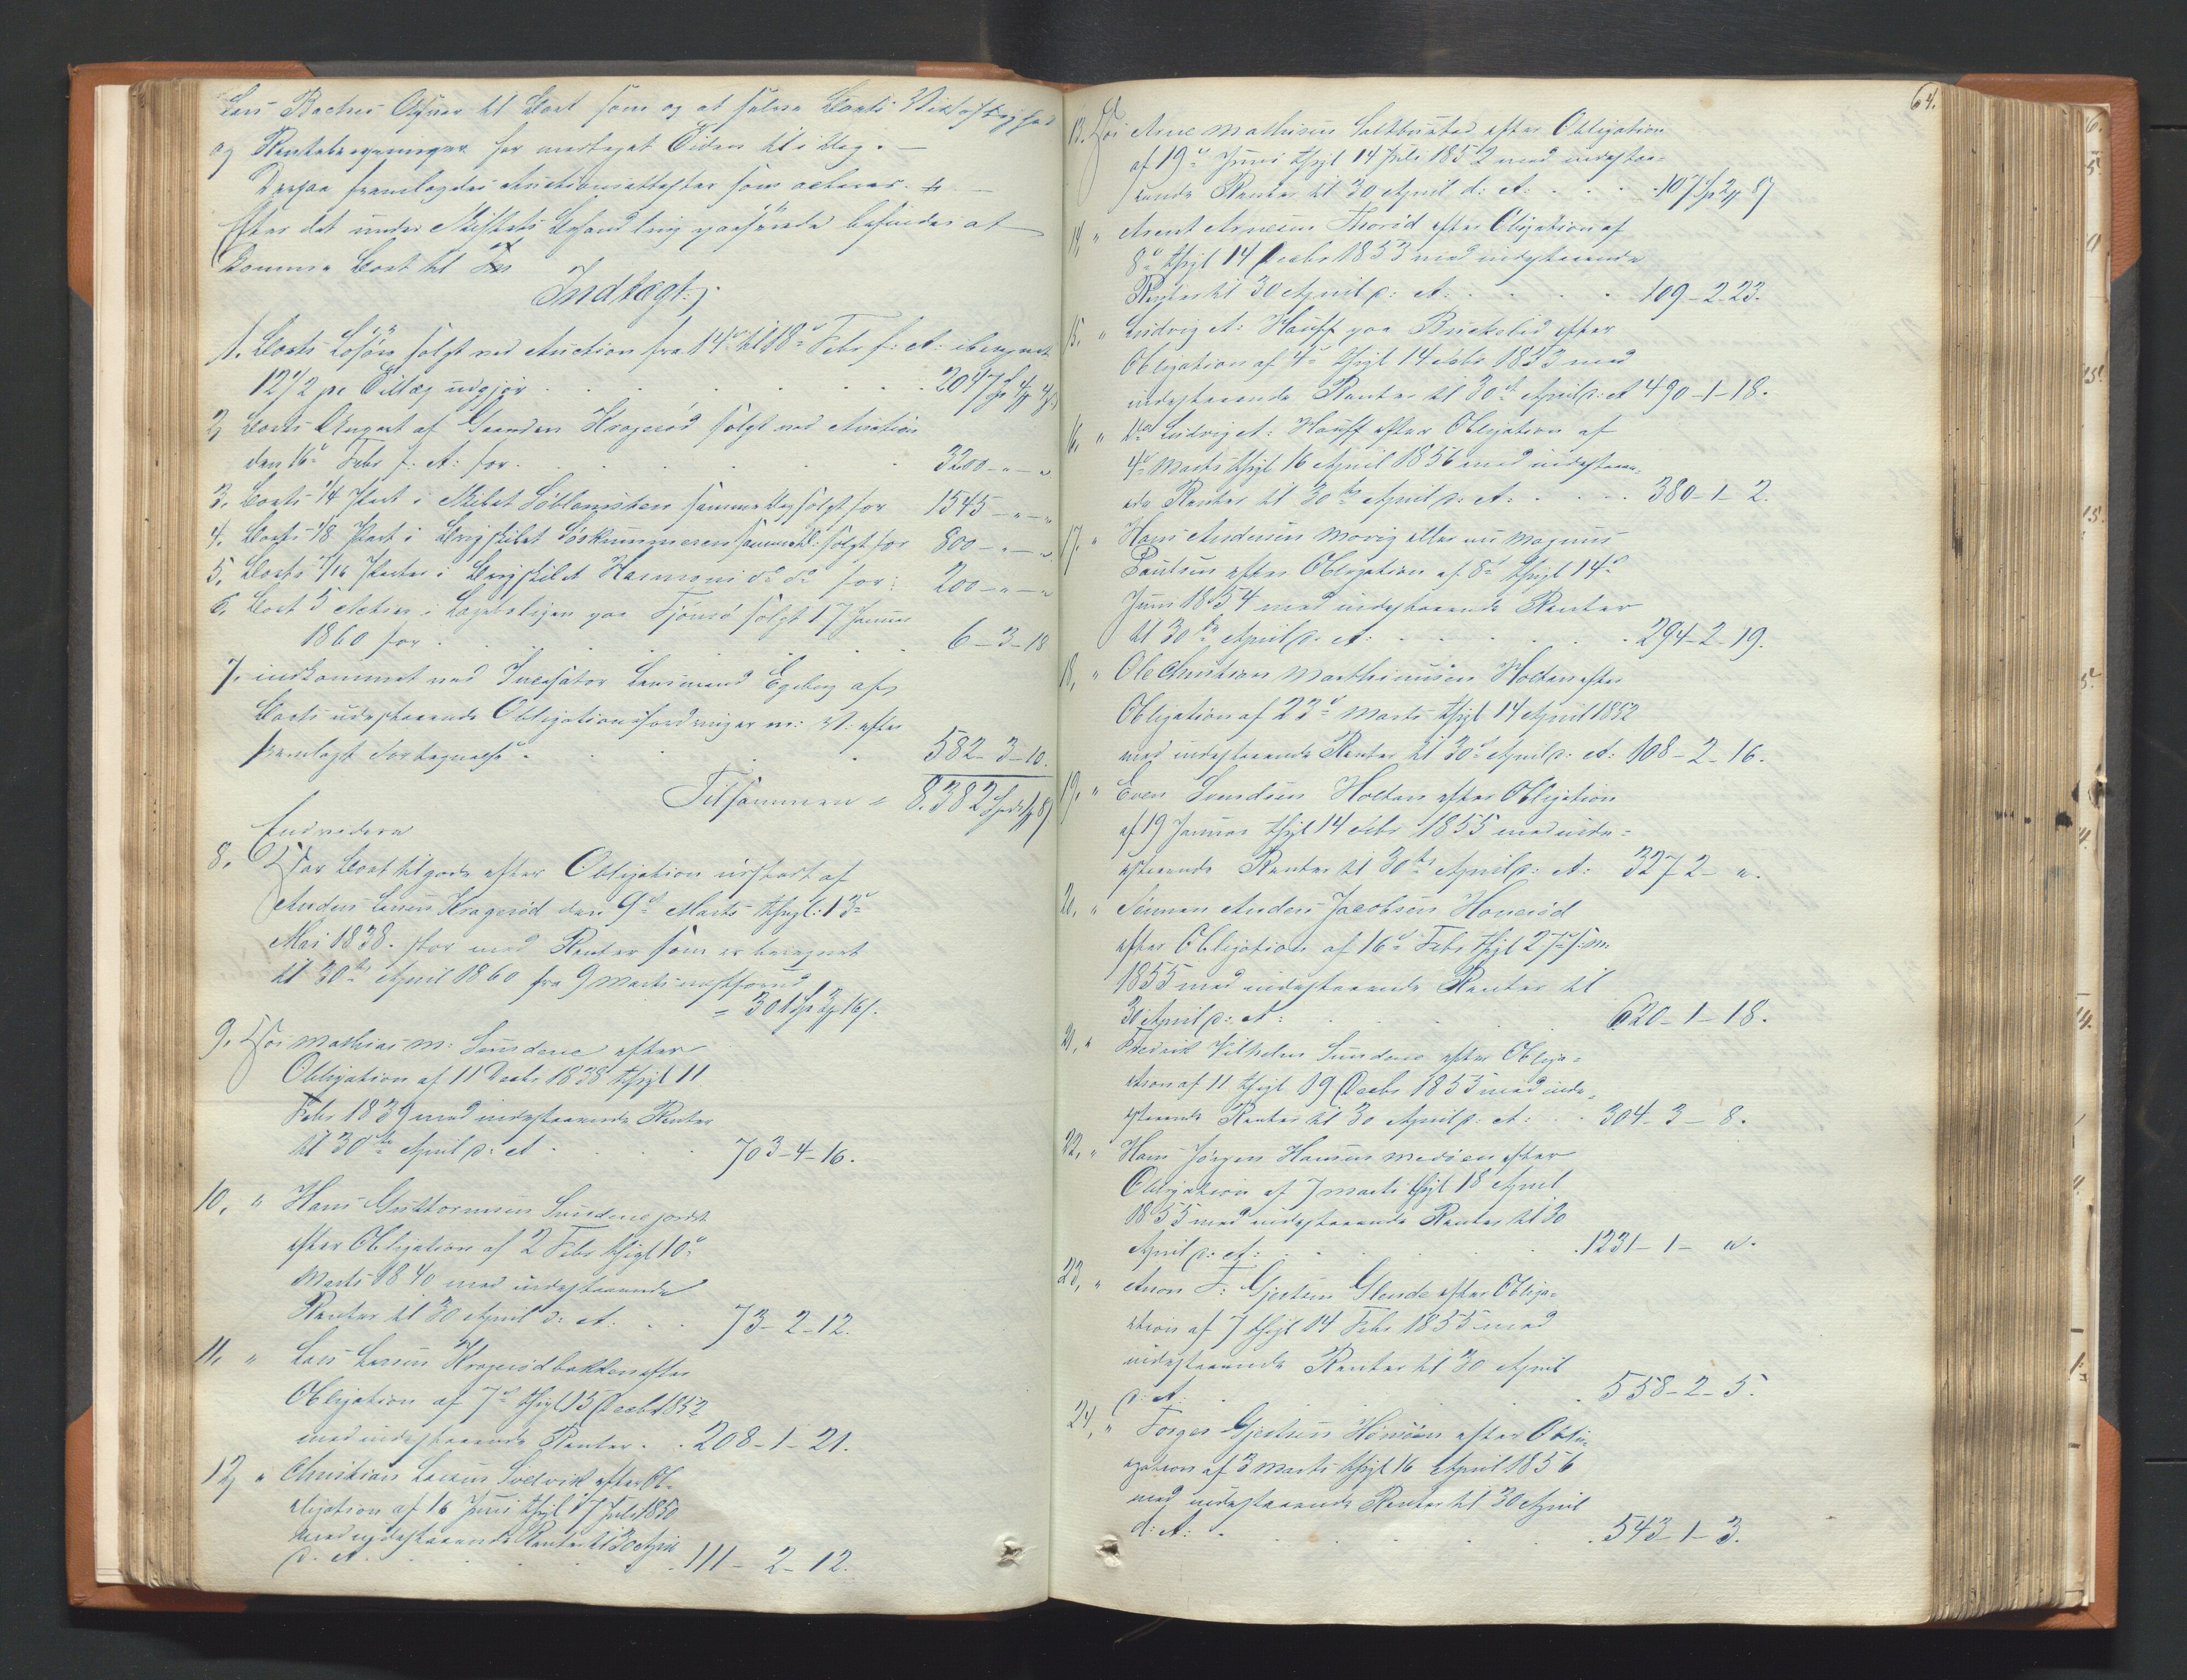 og Renteberegninger har modtaget Eiden til i Dag. —
Derpaa fremlagdes Auctionsattester som acteres.
Efter det under Skiftets Behandling passerede befindes at
komme Boet til
Indtægt:
1. Boets Løsøre solgt ved Auction fra 14de til 18de Febr f: A: iberegnet
12 1/2 pc Tillæg udgjør . . . 2047
2, Boets Anpart af Gaarden Kragerød solgt ved Auction
den 16de Febr f: A: for . . . 3200 - " - "
3. Boets 1/4 Part i Skibet Søblomsten samme Dag solgt for 1545 - " - "
4. Boets 1/8 Part i Brigskibet sammed: solgt for 800 - " - "
5. Boets 1/16 Parter i Brigskibet Harmoni do do for: 200 - " - "
6. Boets 5 Actier i paa Tjømø solgt 17 Januar
1860 for . . . 6 - 3 - 18
7. indkommet ved Incasator Lensmand Egeberg af
Boets udestaaende Obligationsfordringer m: V: efter
fremlagt Fortegnelse . . . 582 - 3 - 10.
Tilsammen = 8.382
Endvidere
8. Har Boet tilgode efter Obligation udstedt af
Anders Larsen Kragerød den 9de Marts thgl: 13de
Mai 1838. stor med Renter som er beregnet
til 30te April 1860 fra 9 Marts
= 301
9. Hos Mathias M: Sundene efter
Obligation af 11 Decbr 1838 thgl 11
Febr 1839 med indestaaende Renter
til 30te April d: A . . . 703 - 4 - 16.
10, " Hans Guttormsen Sundene
efter Obligation af 2 Febr thgl 10de
Marts 1840 med indestaaende
Renter til 30 April d: A: . . 73 - 2 - 12.
11, " Lars Larsen Kragerødbakken efter
Obligation af 7de thgl 15 Decbr 1852
med indestaaende Renter . . 208 - 1 - 21.
12, " Christian Larsen efter Ob-
ligation af 16 Juni thgl 17 Juli 1850
med indestaaende Renter til 30 April
d: A. . . . 111 - 2 - 12.
64.
13. Hos Arne Mathisen Saltbustad efter Obligation
af 19de Juni thgl 14 Juli 1852 med indestaa-
ende Renter til 30 April d: A: . . . 107
14, " Arent Arnesen Thorød efter Obligation af
8de thgl 14 Decbr 1853 med indestaaende
Renter til 30 April d: A: . . . 109 - 2 - 23.
15, " Ludvig A: Hauff paa efter
Obligation af 4de thgl 14 1853 med
indestaaende Renter til 30te April d: A 490 - 1 - 18.
16, " Ludvig A: Hauff efter Obligation af
4de Marts thgl 16 April 1856 med indestaa-
ende Renter til 30te April d: A: . . . 380 - 1 - 2.
17, " Hans Andersen eller nu Magnus
Paulsen efter Obligation af 8de thgl 14de
Juni 1854 med indestaaende Renter
til 30te April d: A: . . . 294 - 2 - 19.
18, " Ole Christian Mathiusen Holten efter
Obligation af 23de Marts thgl 14 April 1852
med indestaaende Renter til 30te April d: A: 108 - 2 - 16.
19, " Even Svendsen Holten efter Obligation
af 19 Januar thgl 14 Febr 1855 med inde-
staaende Renter til 30te April d: A: 327 2 - ".
20, " Anders Jacobsen
efter Obligation af 16de Febr thgl 27de s: M:
1855 med indestaaende Renter til
30 April d: A: . . . 620 - 1 - 18.
21, " Fredrik Vilhelm Sundene efter Obliga-
tion af 11 thgl 19 Decbr 1855 med inde-
staaende Renter til 30 April d: A: . . 304 - 3 - 8.
22, " Hans Jørgen Hansen efter
Obligation af 7 Marts thgl 18 April
1855 med indestaaende Renter til 30
April d: A: . . . 1231 - 1 - ".
23, " Aron F: Gjertsen Glende efter Obliga-
tion af 7 thgl 14 Febr 1855 med
indestaaende Renter til 30 April
d: A: . . . 558 - 2 - 5.
24, " Torger Gjertsen efter Obli-
gation af 3 Marts thgl 16 April 1856
med indestaaende Renter til 30 April
d: A: . . . 543 - 1 - 3.